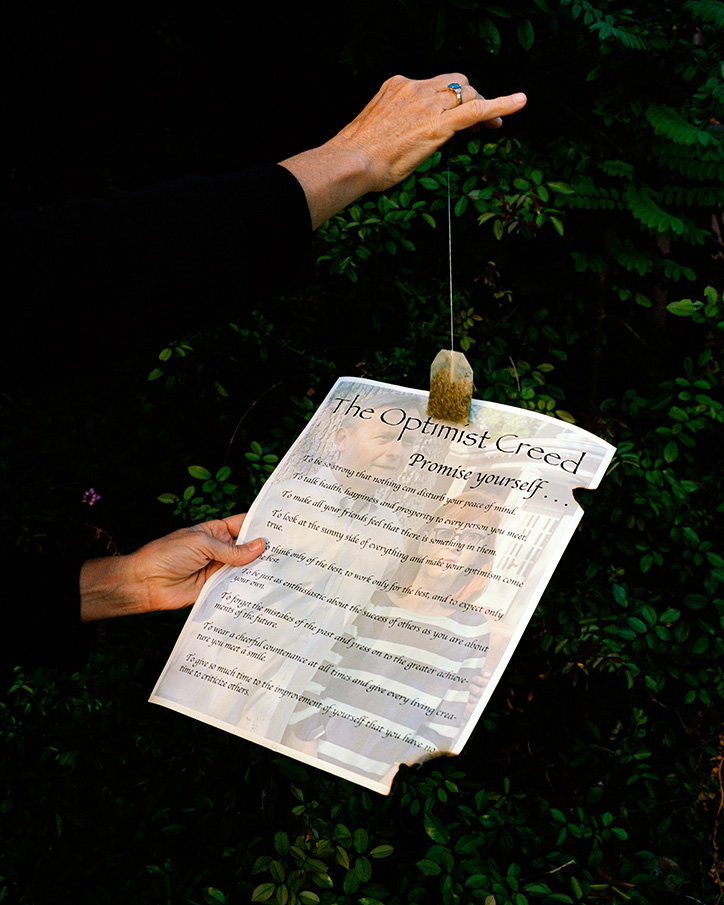 The Optimist Creed
Promise yourself . . .
To be so strong that nothing can disturb your peace of mind.
To talk health, happiness and prosperity to every person you meet.
To make all your friends feel that there is something in them.
To look at the sunny side of everything and make your optimism come
true.
To think only of the best, to work only for the best, and to expect only
the best.
To be just as enthusiastic about the success of others as you are about
your own.
To forget the mistakes of the past and press on to the greater achieve-
ments of the future.
To wear a cheerful countenance at all times and give every living crea-
ture you meet a smile.
To give so much time to the improvement of yourself that you have no
time to criticize others.